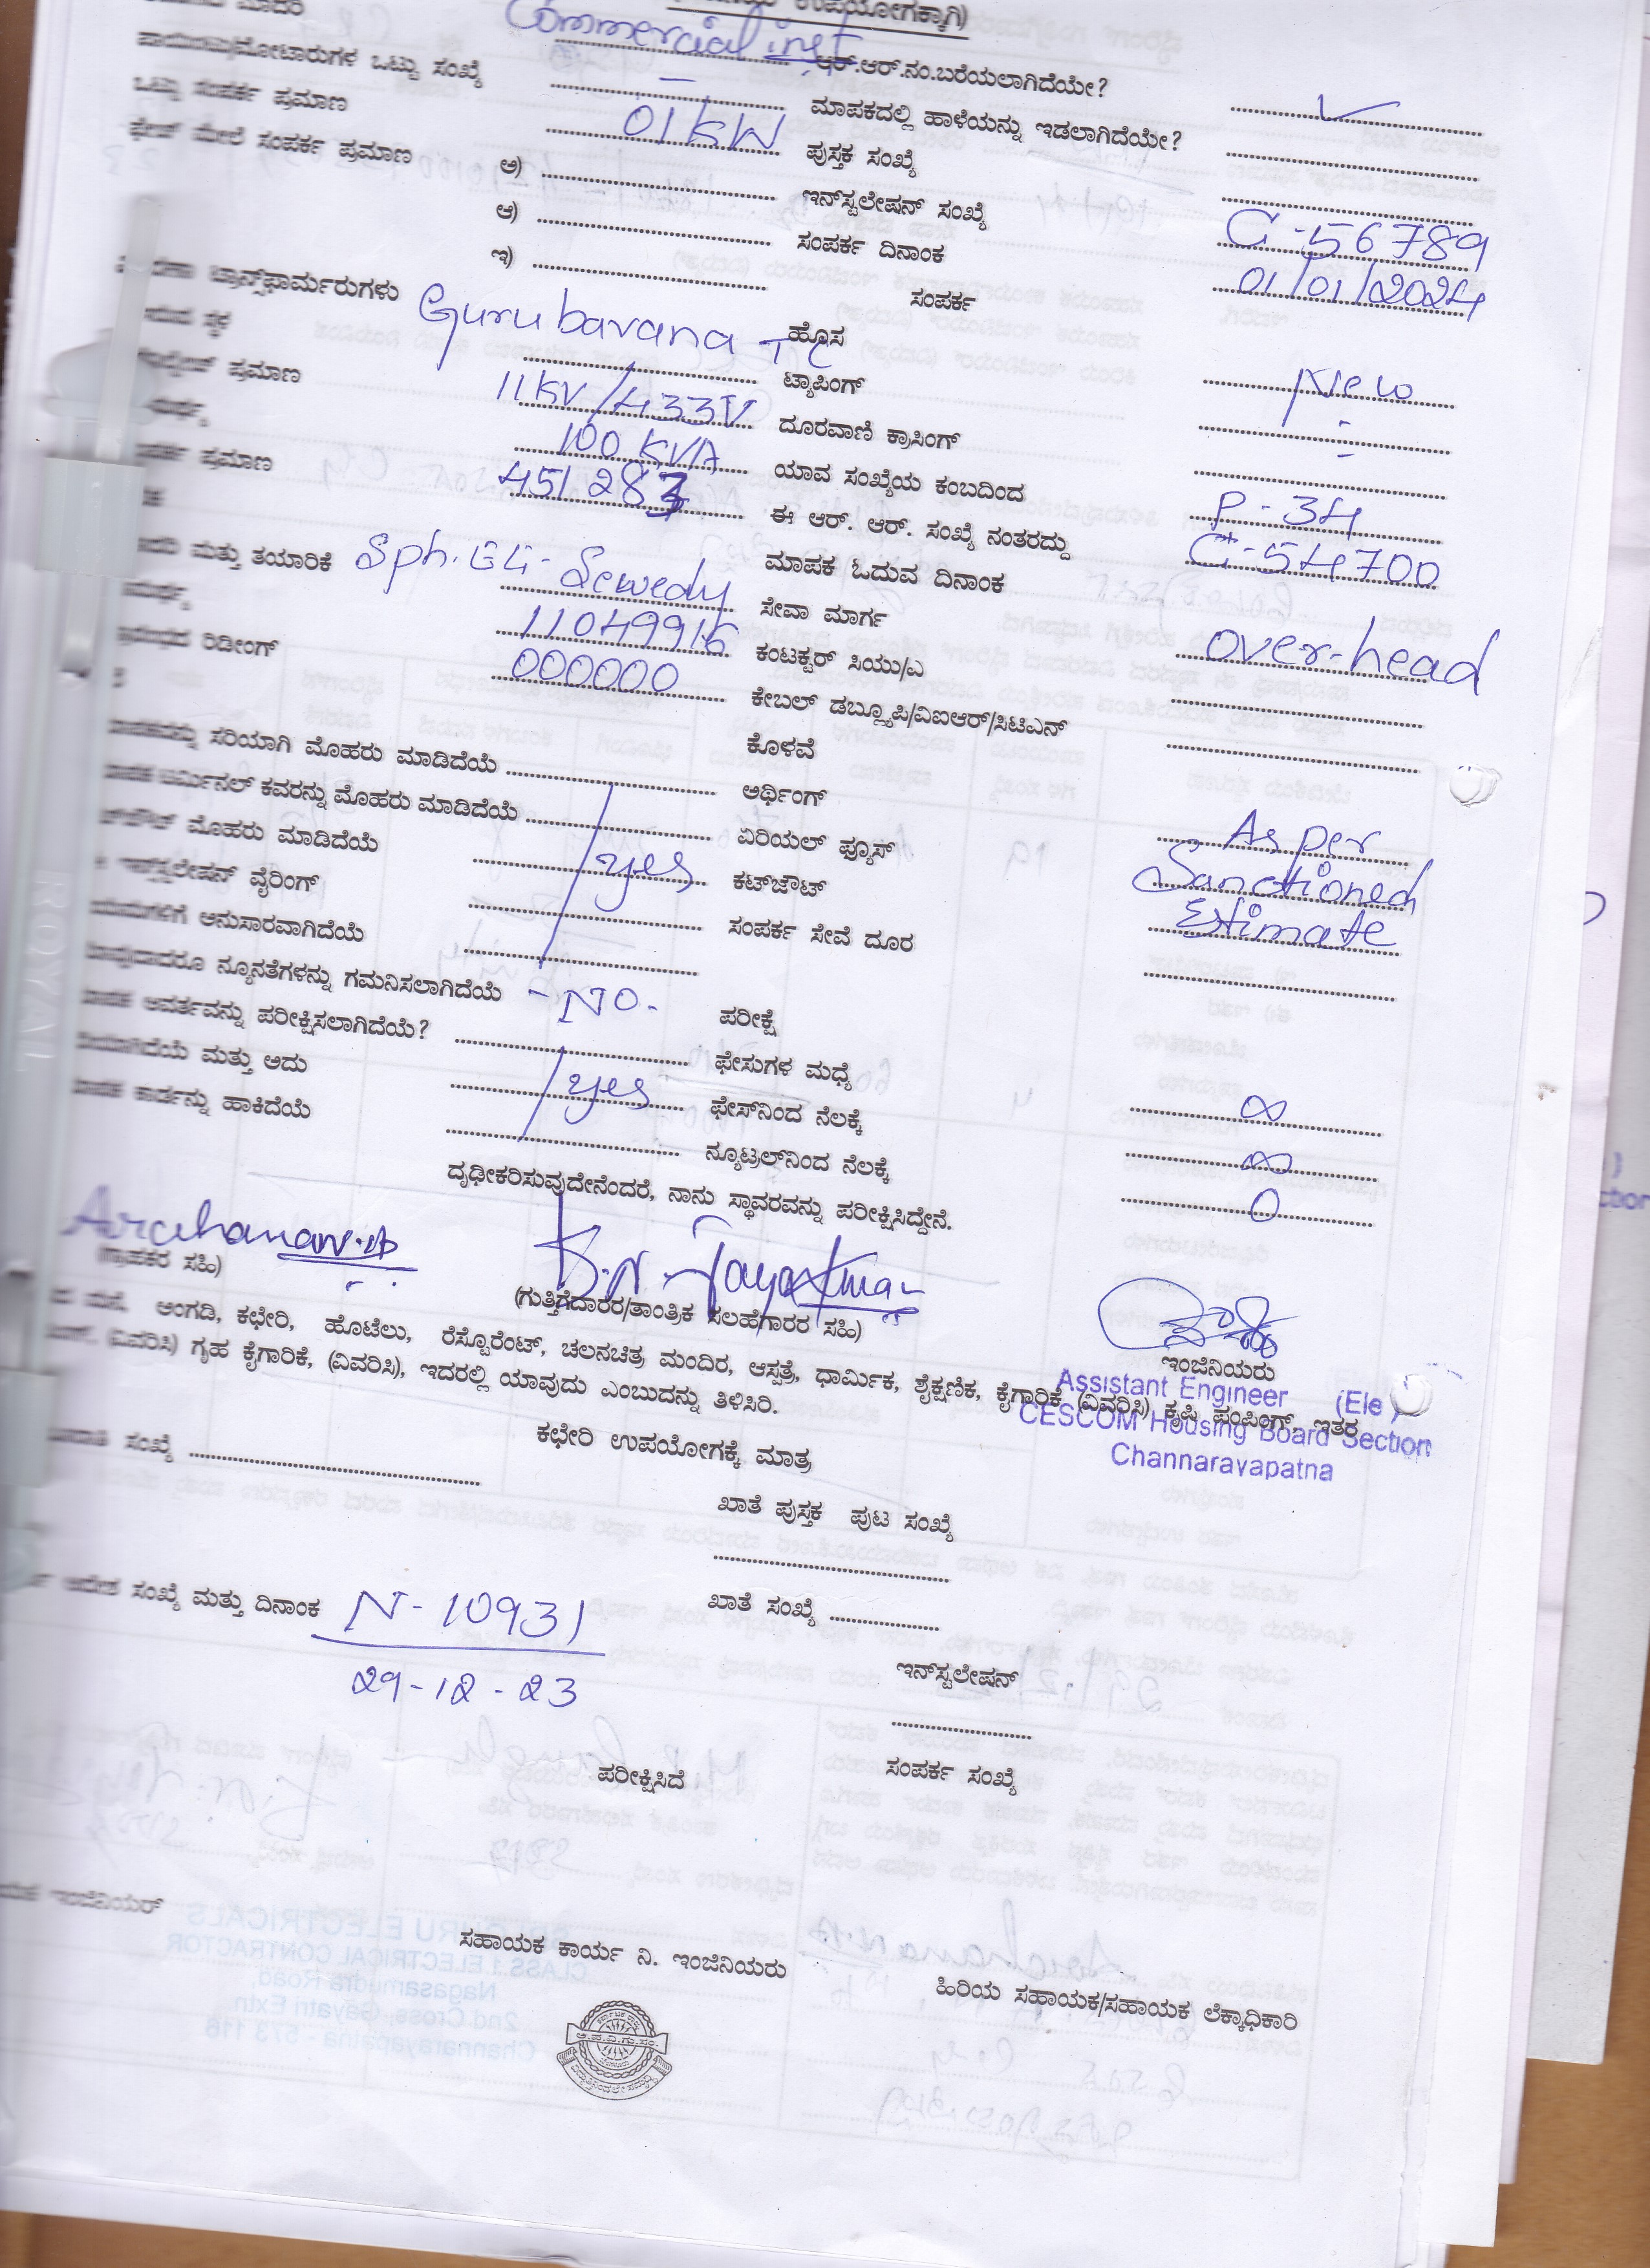 ಉಪಯೋಗಕ್ಕಾಗಿ)
ಮಾದರಿ Commercial inst ಆರ್.ಆರ್.ನಂ.ಬರೆಯಲಾಗಿದೆಯೇ? ✓
ಪಾಯಿಂಟು/ಮೋಟಾರುಗಳ ಒಟ್ಟು ಸಂಖ್ಯೆ — ಮಾಪಕದಲ್ಲಿ ಹಾಳೆಯನ್ನು ಇಡಲಾಗಿದೆಯೇ?
ಒಟ್ಟು ಸಂಪರ್ಕ ಪ್ರಮಾಣ 01 KW ಪುಸ್ತಕ ಸಂಖ್ಯೆ
ಫೇಸ್ ಮೇಲೆ ಸಂಪರ್ಕ ಪ್ರಮಾಣ ಅ) ಇನ್‌ಸ್ಟಲೇಷನ್ ಸಂಖ್ಯೆ C-56789
ಆ) ಸಂಪರ್ಕ ದಿನಾಂಕ 01/01/2024
ಇ) ಸಂಪರ್ಕ
ಟ್ರಾನ್ಸ್‌ಫಾರ್ಮರುಗಳು Gurubavana TC ಹೊಸ New
ಸ್ಥಳ ಟ್ಯಾಪಿಂಗ್ -
ಪ್ರಮಾಣ 11KV/433V ದೂರವಾಣಿ ಕ್ರಾಸಿಂಗ್ -
100 KVA ಯಾವ ಸಂಖ್ಯೆಯ ಕಂಬದಿಂದ P-34
ಪ್ರಮಾಣ 451283 ಈ ಆರ್. ಆರ್. ಸಂಖ್ಯೆ ನಂತರದ್ದು C-54700
ಮಾಪಕ ಓದುವ ದಿನಾಂಕ
ಮತ್ತು ತಯಾರಿಕೆ Sph. El- Sewedy ಸೇವಾ ಮಾರ್ಗ over-head
11049916 ಕಂಟಕ್ಟರ್ ಸಿಯು/ಎ
ರಿಡೀಂಗ್ 000000 ಕೇಬಲ್ ಡಬ್ಲ್ಯೂಪಿ/ವಿಐಆರ್/ಸಿಟಿಎನ್
ಕೊಳವೆ
ಸರಿಯಾಗಿ ಮೊಹರು ಮಾಡಿದೆಯೆ ಆರ್ಥಿಂಗ್ As per
ಟರ್ಮಿನಲ್ ಕವರನ್ನು ಮೊಹರು ಮಾಡಿದೆಯೆ ಏರಿಯಲ್ ಫ್ಯೂಸ್ Sanctioned
ಮೊಹರು ಮಾಡಿದೆಯೆ yes ಕಟ್‌ಔಟ್ Estimate
ವೈರಿಂಗ್ ಸಂಪರ್ಕ ಸೇವೆ ದೂರ
ಅನುಸಾರವಾಗಿದೆಯೆ
ನ್ಯೂನತೆಗಳನ್ನು ಗಮನಿಸಲಾಗಿದೆಯೆ - NO - ಪರೀಕ್ಷೆ
ಪರೀಕ್ಷಿಸಲಾಗಿದೆಯೆ? ಫೇಸುಗಳ ಮಧ್ಯೆ ∞
ಮತ್ತು ಅದು yes ಫೇಸ್‌ನಿಂದ ನೆಲಕ್ಕೆ ∞
ಕಾರ್ಡನ್ನು ಹಾಕಿದೆಯೆ ನ್ಯೂಟ್ರಲ್‌ನಿಂದ ನೆಲಕ್ಕೆ 0
ದೃಢೀಕರಿಸುವುದೇನೆಂದರೆ, ನಾನು ಸ್ಥಾವರವನ್ನು ಪರೀಕ್ಷಿಸಿದ್ದೇನೆ.
K.N. Jayakumar
(ಗ್ರಾಹಕರ ಸಹಿ) (ಗುತ್ತಿಗೆದಾರರ/ತಾಂತ್ರಿಕ ಸಲಹೆಗಾರರ ಸಹಿ) ಇಂಜಿನಿಯರು
ಅಂಗಡಿ, ಕಛೇರಿ, ಹೊಟೆಲು, ರೆಸ್ಟೊರೆಂಟ್, ಚಲನಚಿತ್ರ ಮಂದಿರ, ಆಸ್ಪತ್ರೆ, ಧಾರ್ಮಿಕ, ಶೈಕ್ಷಣಿಕ, ಕೈಗಾರಿಕೆ (ವಿವರಿಸಿ) ಕೃಷಿ ಪಂಪಿಂಗ್, ಇತರ
(ವಿವರಿಸಿ) ಗೃಹ ಕೈಗಾರಿಕೆ, (ವಿವರಿಸಿ), ಇದರಲ್ಲಿ ಯಾವುದು ಎಂಬುದನ್ನು ತಿಳಿಸಿರಿ.
Assistant Engineer (Ele)
CESCOM Housing Board Section
Channarayapatna
ಕಛೇರಿ ಉಪಯೋಗಕ್ಕೆ ಮಾತ್ರ
ಸಂಖ್ಯೆ ಖಾತೆ ಪುಸ್ತಕ ಪುಟ ಸಂಖ್ಯೆ
ಆದೇಶ ಸಂಖ್ಯೆ ಮತ್ತು ದಿನಾಂಕ N-10931 ಖಾತೆ ಸಂಖ್ಯೆ
29-12-23 ಇನ್‌ಸ್ಟಲೇಷನ್
ಪರೀಕ್ಷಿಸಿದೆ ಸಂಪರ್ಕ ಸಂಖ್ಯೆ
ಇಂಜಿನಿಯರ್ ಸಹಾಯಕ ಕಾರ್ಯ ನಿ. ಇಂಜಿನಿಯರು ಹಿರಿಯ ಸಹಾಯಕ/ಸಹಾಯಕ ಲೆಕ್ಕಾಧಿಕಾರಿ
ROYAL